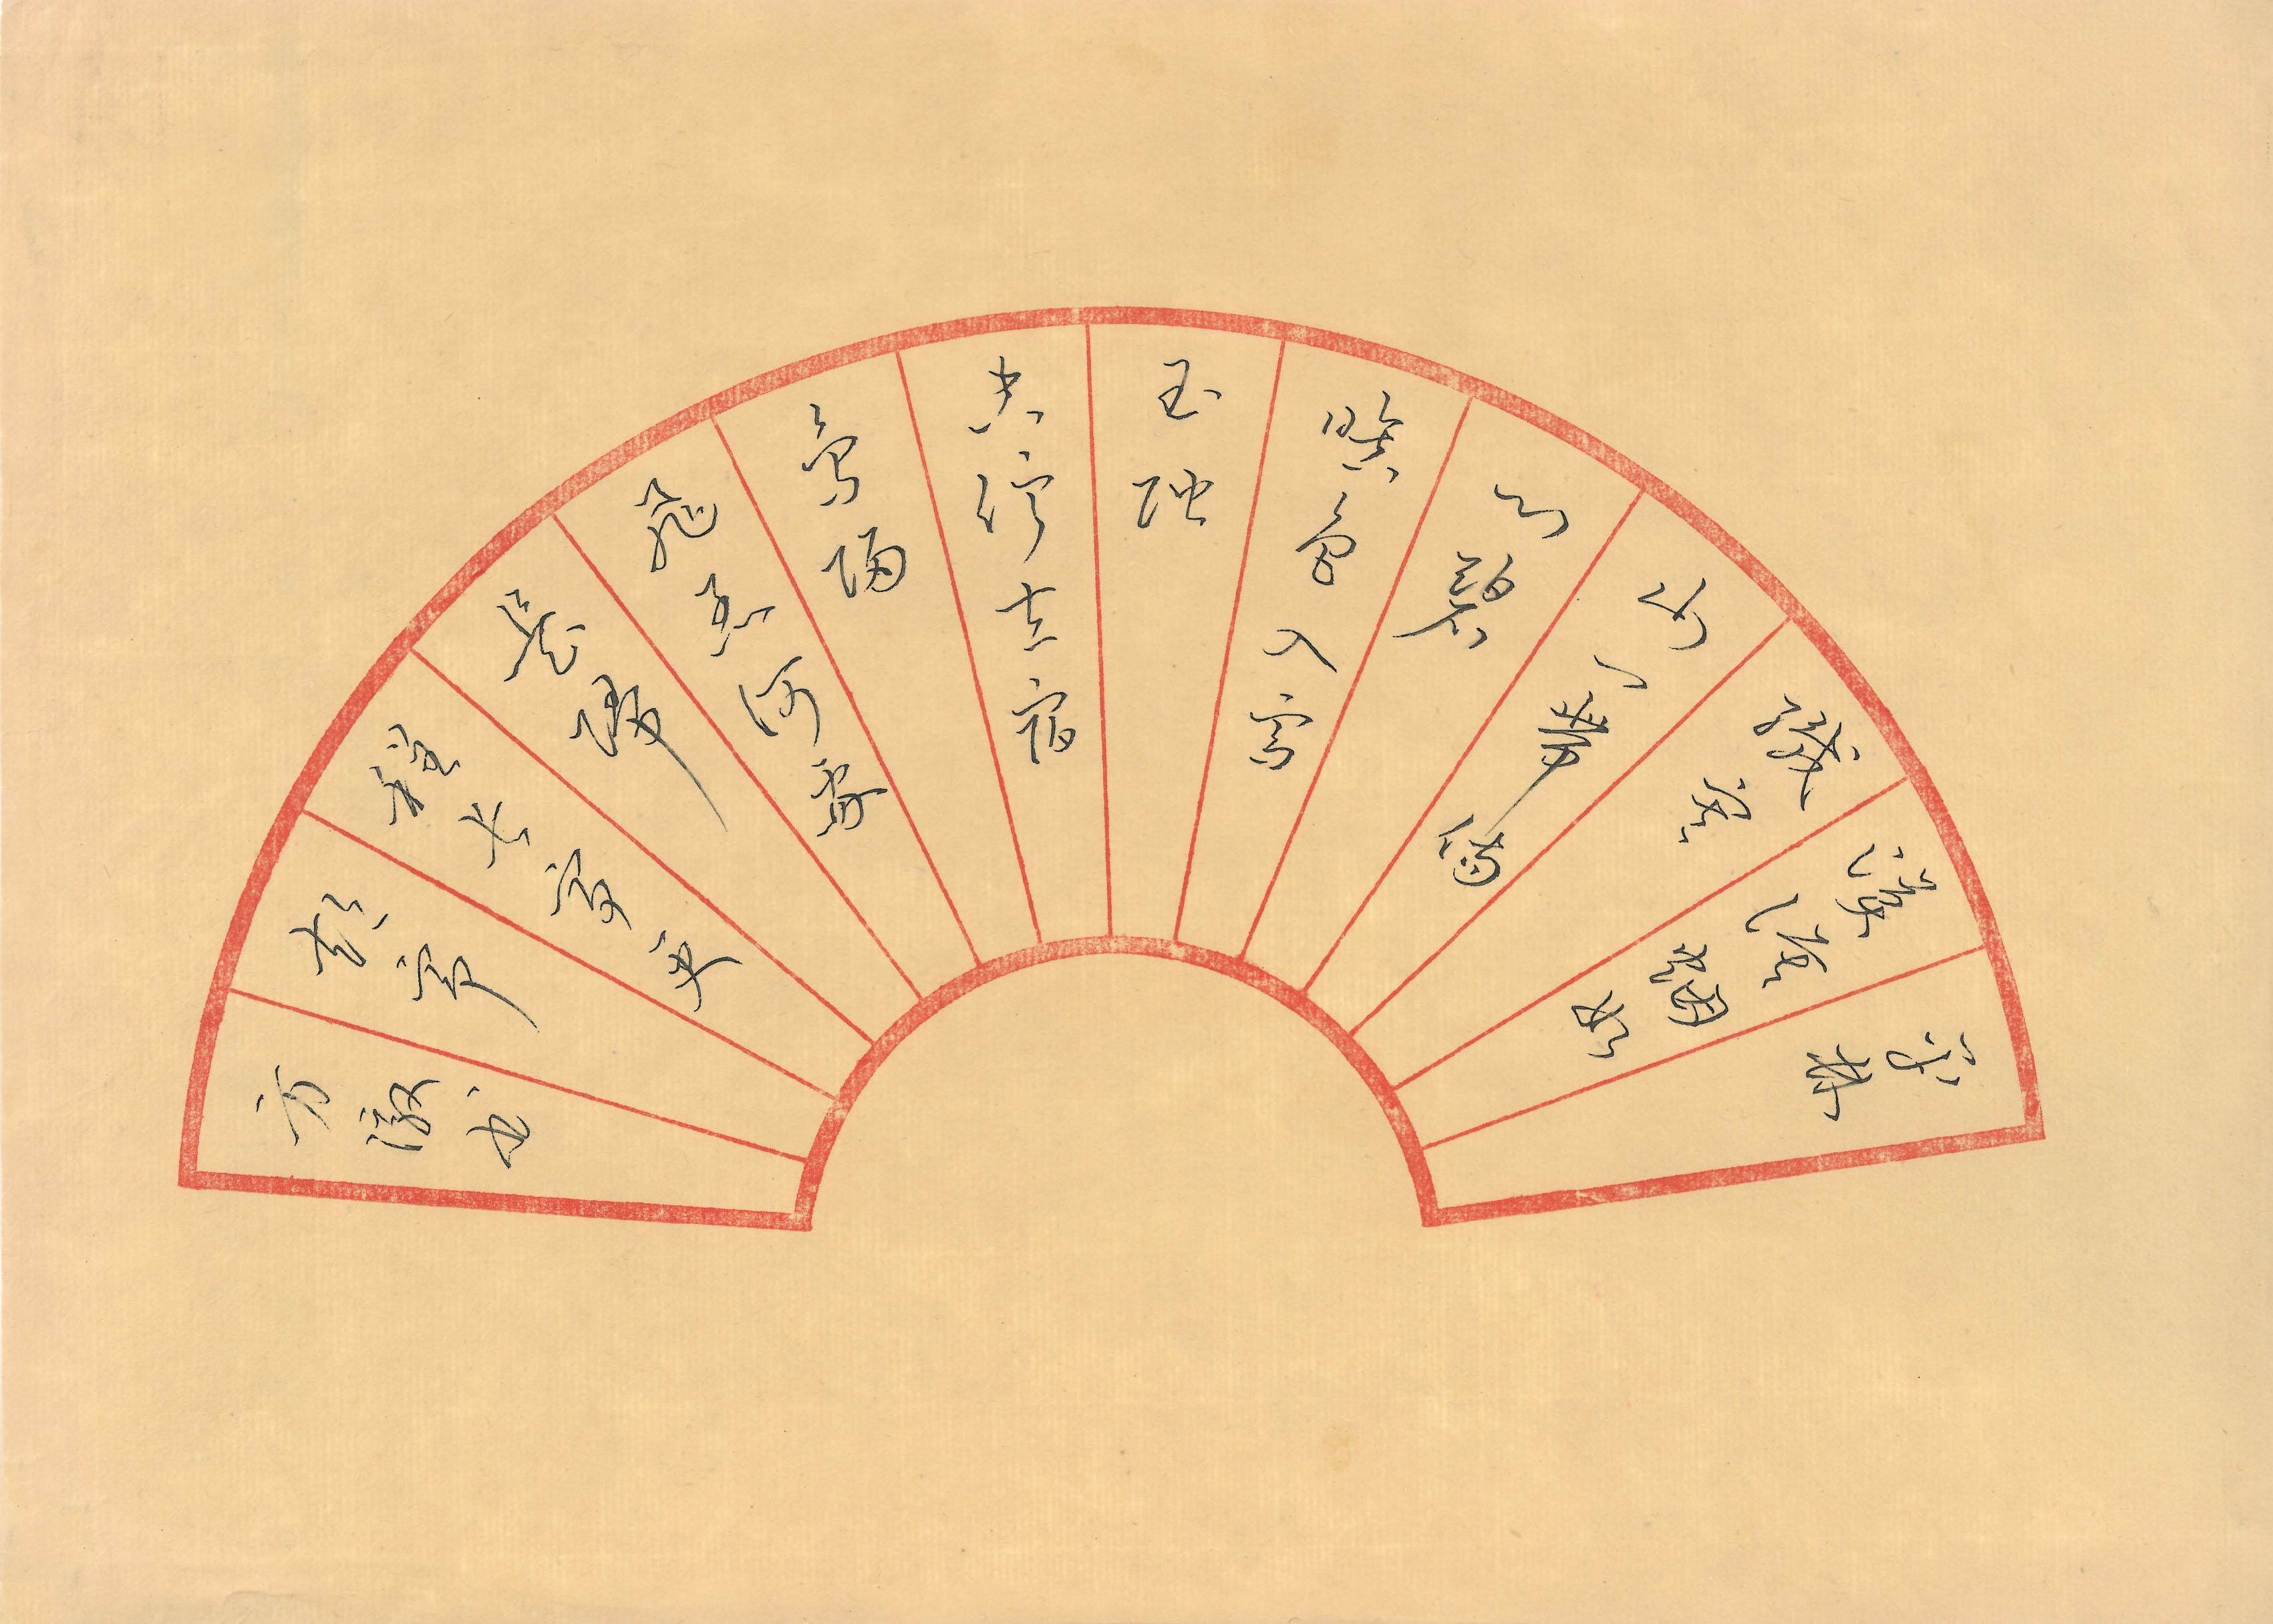 平林
漠漠煙如
織寒
山一帶傷
心碧
暝色入高
玉階
空佇立宿
鳥歸
飛急何處
是歸
程長亭更
短亭
方